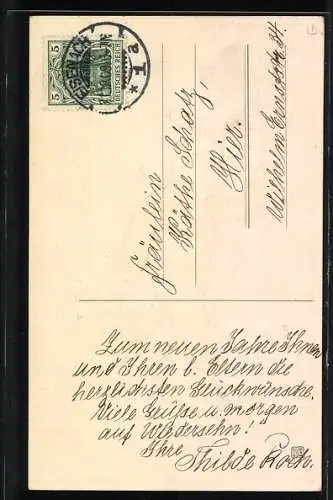 5
5
DEUTSCHES REICH
* 1 a
Fräulein
Käthe Schatz,
Hier.
Wilhelm Ernststr. 84.
Zum neuen Jahre Ihnen
und Ihren l. Eltern die
herzlichsten Glückwünsche.
Viele Grüße u. morgen
auf Wiedersehn!
Ihre
Thilde Koch.